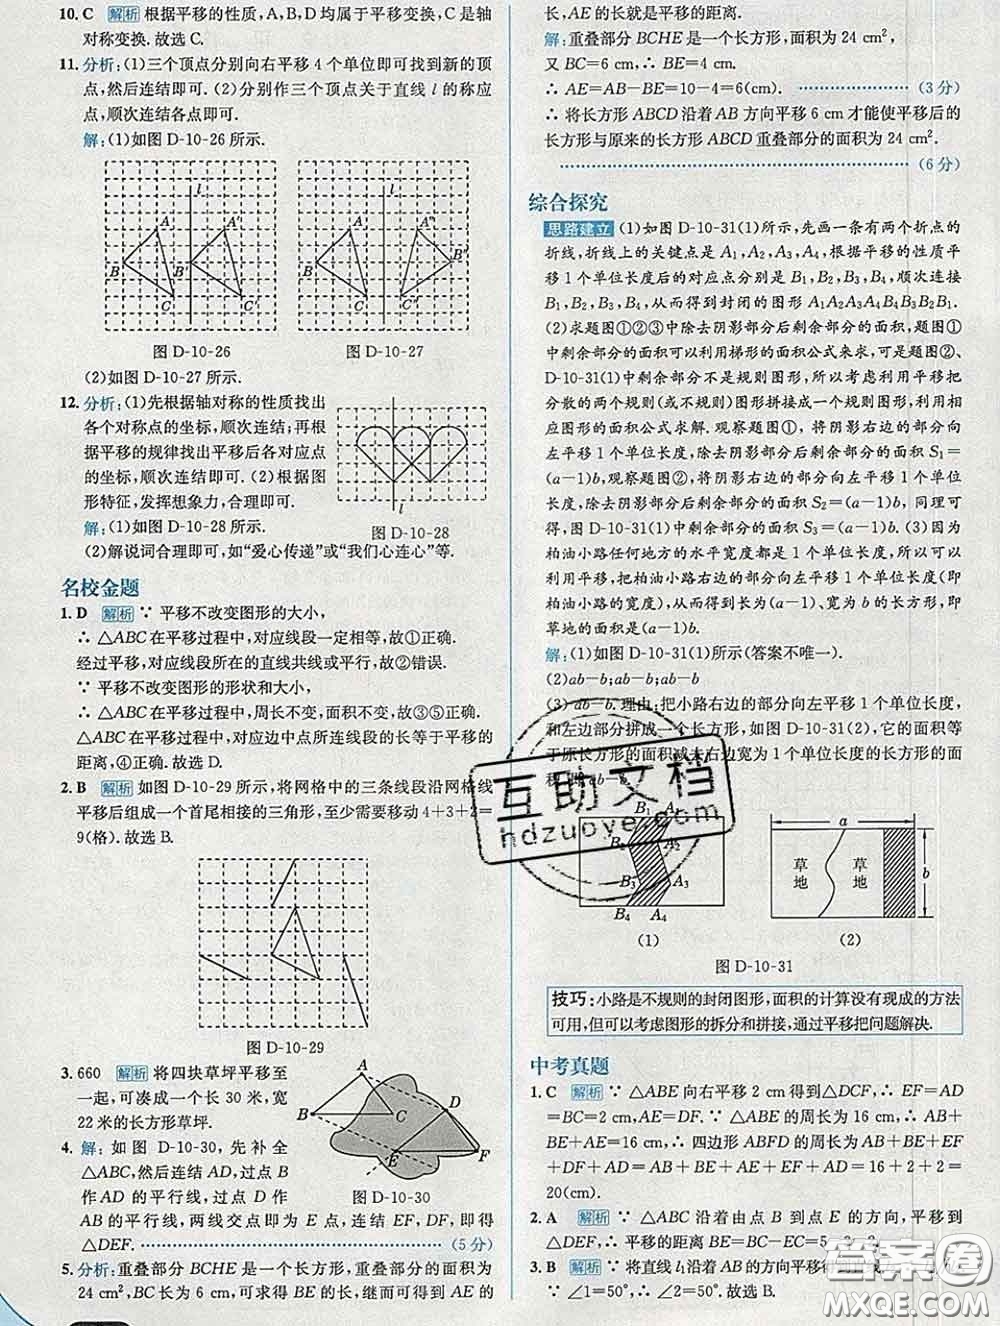 10. C 解析 根据平移的性质,A,B,D 均属于平移变换,C 是轴
对称变换.故选 C.
11. 分析:(1)三个顶点分别向右平移 4 个单位即可找到新的顶
点,然后连结即可.(2)分别作三个顶点关于直线 l 的称应
点,顺次连结各点即可.
解:(1)如图 D-10-26 所示.
l
A A′
B B′
C C′
图 D-10-26
l
A A″
B B″
C C″
图 D-10-27
(2)如图 D-10-27 所示.
12. 分析:(1)先根据轴对称的性质找出
各个对称点的坐标,顺次连结;再根
据平移的规律找出平移后各对应点
的坐标,顺次连结即可.(2)根据图
形特征,发挥想象力,合理即可.
l
图 D-10-28
解:(1)如图 D-10-28 所示.
(2)解说词合理即可,如“爱心传递”或“我们心连心”等.
名校金题
1. D 解析 ∵ 平移不改变图形的大小,
∴ △ABC 在平移过程中,对应线段一定相等,故①正确.
经过平移,对应线段所在的直线共线或平行,故②错误.
∵ 平移不改变图形的形状和大小,
∴ △ABC 在平移过程中,周长不变,面积不变,故③⑤正确.
△ABC 在平移过程中,对应边中点所连线段的长等于平移的
距离,④正确.故选 D.
2. B 解析 如图 D-10-29 所示,将网格中的三条线段沿网格线
平移后组成一个首尾相接的三角形,至少需要移动 4+3+2=
9(格).故选 B.
图 D-10-29
3. 660 解析 将四块草坪平移至
一起,可凑成一个长 30 米,宽
22 米的长方形草坪.
4. 解:如图 D-10-30,先补全
△ABC,然后连结 AD,过点 B
作 AD 的平行线,过点 D 作
AB 的平行线,两线交点即为 E 点,连结 EF,DF,即得
△DEF. (5 分)
A
B C D
E F
图 D-10-30
5. 分析:重叠部分 BCHE 是一个长方形,重叠部分的面积为
24 cm²,BC 长为 6 cm,可求得 BE 的长,继而可得到 AE 的
长,AE 的长就是平移的距离.
解:重叠部分 BCHE 是一个长方形,面积为 24 cm²,
又 BC=6 cm,∴ BE=4 cm.
∴ AE=AB-BE=10-4=6(cm). (3 分)
∴ 将长方形 ABCD 沿着 AB 方向平移 6 cm 才能使平移后的
长方形与原来的长方形 ABCD 重叠部分的面积为 24 cm².
(6 分)
综合探究
思路建立 (1)如图 D-10-31(1)所示,先画一条有两个折点的
折线,折线上的关键点是 A₁,A₂,A₃,A₄,根据平移的性质平
移 1 个单位长度后的对应点分别是 B₁,B₂,B₃,B₄,顺次连接
B₁,B₂,B₃,B₄,从而得到封闭的图形 A₁A₂A₃A₄B₄B₃B₂B₁.
(2)求题图①②③中除去阴影部分后剩余部分的面积,题图①
中剩余部分的面积可以利用梯形的面积公式来求,可是题图②、
D-10-31(1)中剩余部分不是规则图形,所以考虑利用平移把
分散的两个规则(或不规则)图形拼接成一个规则图形,利用
图形的面积公式求解.观察题图①,将阴影部分右边的图形向
左平移 1 个单位长度,除去阴影部分后剩余部分的面积 S₁=
(a-1)b,观察题图②,将阴影部分右边的图形向左平移 1 个单位
长度,除去阴影部分后剩余部分的面积 S₂=(a-1)b,同理可
得,图 D-10-31(1)中剩余部分的面积 S₃=(a-1)b.(3)因为
柏油小路任何地方的水平宽度都是 1 个单位长度,所以可以
利用平移,把柏油小路右边的草地向左平移 1 个单位长度(即
柏油小路的宽度),从而得到长为(a-1)、宽为 b 的长方形,即
草地的面积为(a-1)b.
解:(1)如图 D-10-31(1)所示(答案不唯一).
(2)ab-b;ab-b;ab-b
(3)ab-b.理由:把小路右边的部分向左平移 1 个单位长度,
和左边部分拼成一个长方形,如图 D-10-31(2),它的面积等
于原长方形的面积减去右边宽为 1 个单位长度的长方形的面
ab-b.
B₁ A₁
B₂
B₃ A₃
B₄ A₄
(1)
a
草地 草地 b
(2)
图 D-10-31
技巧:小路是不规则的封闭图形,面积的计算没有现成的方法
可用,但可以考虑图形的拆分和拼接,通过平移把问题解决.
中考真题
1. C 解析 ∵ △ABE 向右平移 2 cm 得到△DCF,∴ EF=AD
=BC=2 cm,AE=DF.∵ △ABE 的周长为 16 cm,∴ AB+
BE+AE=16 cm,∴ 四边形 ABFD 的周长为 AB+BE+EF
+DF+AD=AB+BE+AE+EF+AD=16+2+2=
20(cm).
2. A 解析 ∵ △ABC 沿着由点 B 到点 E 的方向,平移到
△DEF,∴ 平移的距离 BE=BC-EC=5
3. B 解析 ∵ 将直线 l₁ 沿着 AB 的方向平移得到
∵ ∠1=50°,∴ ∠2=50°.故选 B.
互助文档
hdzuoye.com
答案圈
MXQE.COM